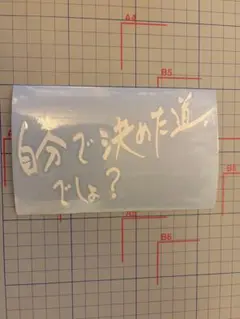 A4
B5
自分で決めた道、
でしょ?
B6